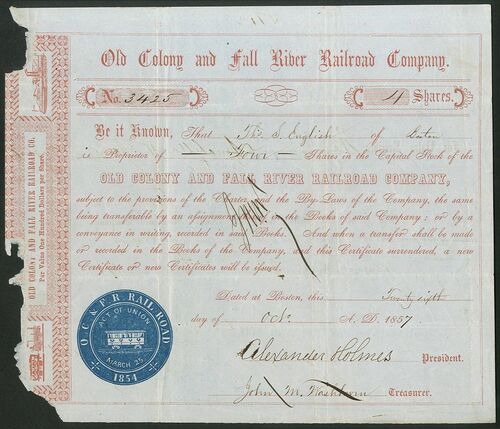 Old Colony and Fall River Railroad Company.
No. 3425 4 Shares.
Be it Known, That Thos. S. English of Boston
is Proprietor of Four Shares in the Capital Stock of the
OLD COLONY AND FALL RIVER RAILROAD COMPANY,
subject to the provisions of the Charter and the By-Laws of the Company, the same
being transferable by an assignment on the Books of said Company; or by a
conveyance in writing, recorded in said Books. And when a transfer shall be made
or recorded in the Books of the Company, and this Certificate surrendered, a new
Certificate or new Certificates will be issued.
Dated at Boston, this Twenty sixth
day of Oct. A. D. 1857
Alexander Holmes President.
John M. Washburn Treasurer.
O C & F. R. RAIL ROAD
ACT OF UNION
MARCH 25
1854
OLD COLONY AND FALL RIVER RAILROAD CO.
Par Value One Hundred Dollars per Share.